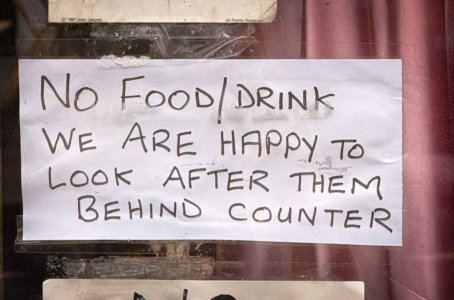 © 1987 Joan Jakobs
All Rights Reserved
NO FOOD/DRINK
WE ARE HAPPY TO
LOOK AFTER THEM
BEHIND COUNTER